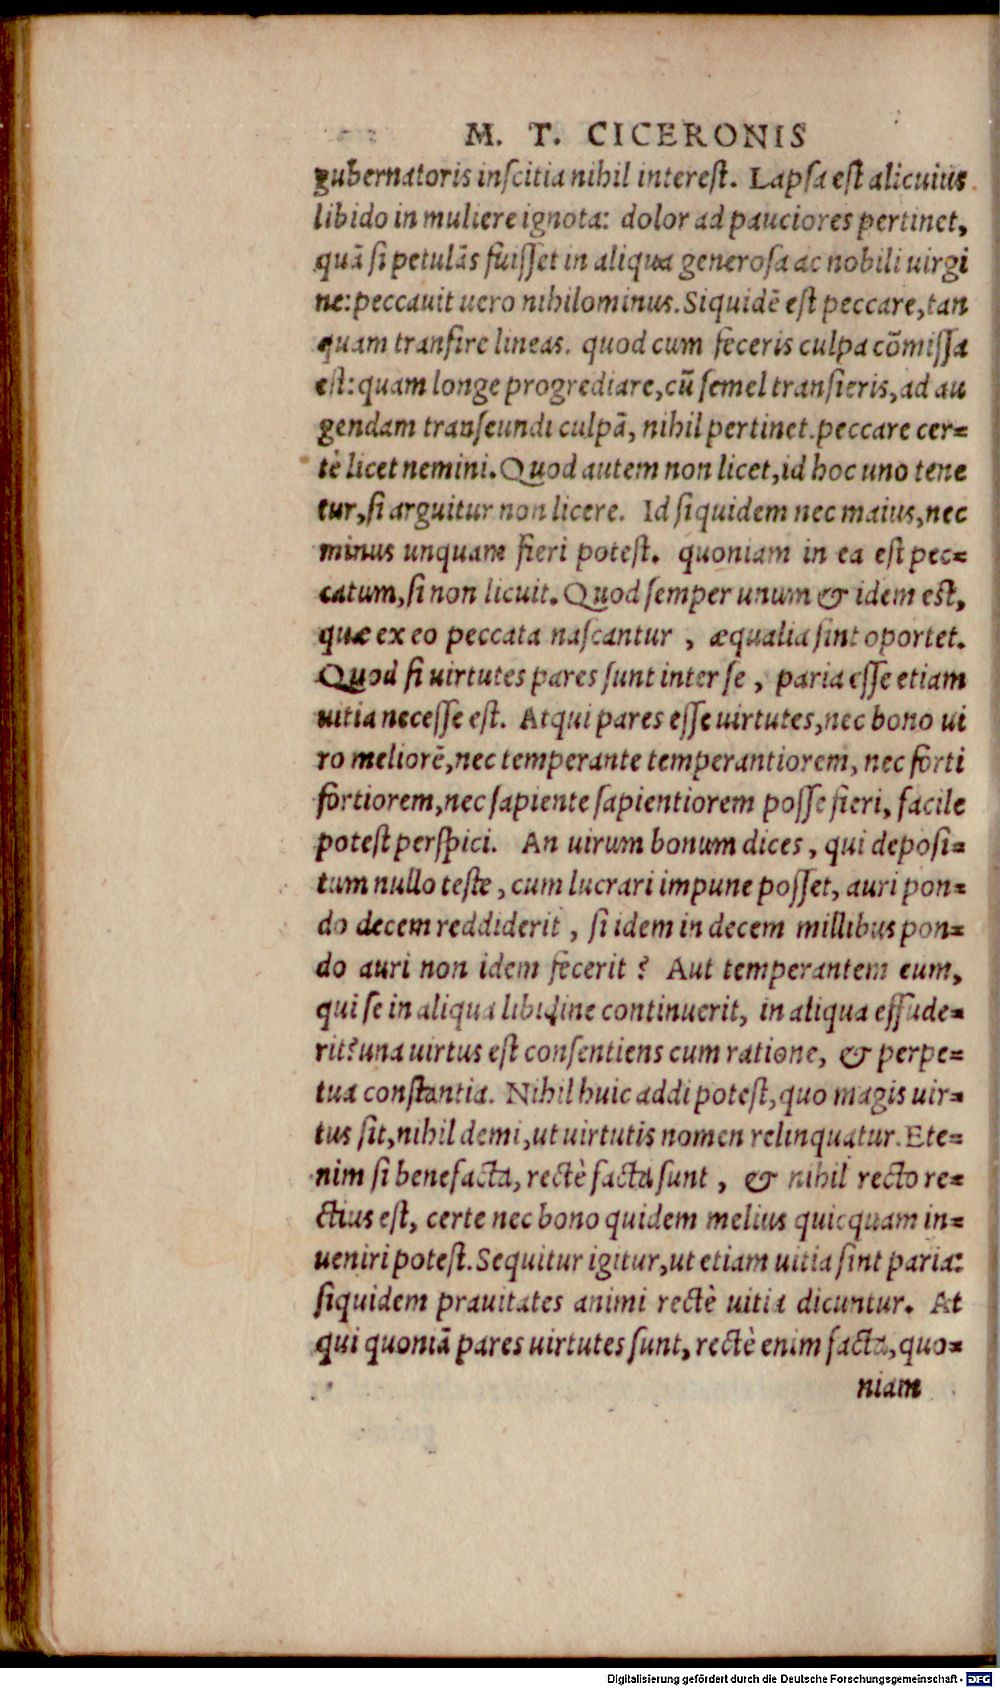 M. T. CICERONIS
gubernatoris inscitia nihil interest. Lapsa est alicuius
libido in muliere ignota: dolor ad pauciores pertinet,
quā si petulās fuisset in aliqua generosa ac nobili uirgi
ne: peccauit uero nihilominus. Siquidē est peccare, tan
quam transire lineas. quod cum feceris culpa cōmissa
est: quam longe progrediare, cū semel transieris, ad au
gendam transeundi culpā, nihil pertinet. peccare cer=
tè licet nemini. Quod autem non licet, id hoc uno tene
tur, si arguitur non licere. Id siquidem nec maius, nec
minus unquam fieri potest. quoniam in ea est pec=
catum, si non licuit. Quod semper unum & idem est,
quæ ex eo peccata nascantur, æqualia sint oportet.
Quod si uirtutes pares sunt inter se, paria esse etiam
uitia necesse est. Atqui pares esse uirtutes, nec bono ui
ro meliorē, nec temperante temperantiorem, nec forti
fortiorem, nec sapiente sapientiorem posse fieri, facile
potest perspici. An uirum bonum dices, qui deposi=
tum nullo teste, cum lucrari impune posset, auri pon=
do decem reddiderit, si idem in decem millibus pon=
do auri non idem fecerit? Aut temperantem eum,
qui se in aliqua libidine continuerit, in aliqua effude=
rit? una uirtus est consentiens cum ratione, & perpe=
tua constantia. Nihil huic addi potest, quo magis uir=
tus sit, nihil demi, ut uirtutis nomen relinquatur. Ete=
nim si benefacta, rectè facta sunt, & nihil recto re=
ctius est, certe nec bono quidem melius quicquam in=
ueniri potest. Sequitur igitur, ut etiam uitia sint paria:
siquidem prauitates animi rectè uitia dicuntur. At
qui quoniā pares uirtutes sunt, rectè enim facta, quo=
niam
Digitalisierung gefördert durch die Deutsche Forschungsgemeinschaft - DFG